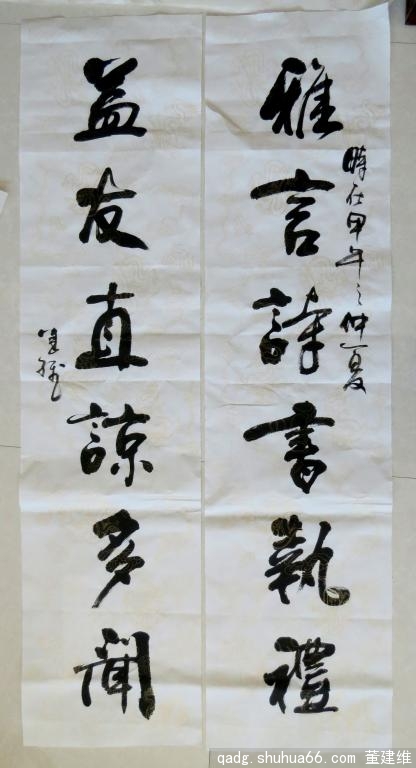 雅言詩書執禮
時在甲午之仲夏
益友直諒多聞
qadg.shuhua66.com 董建维